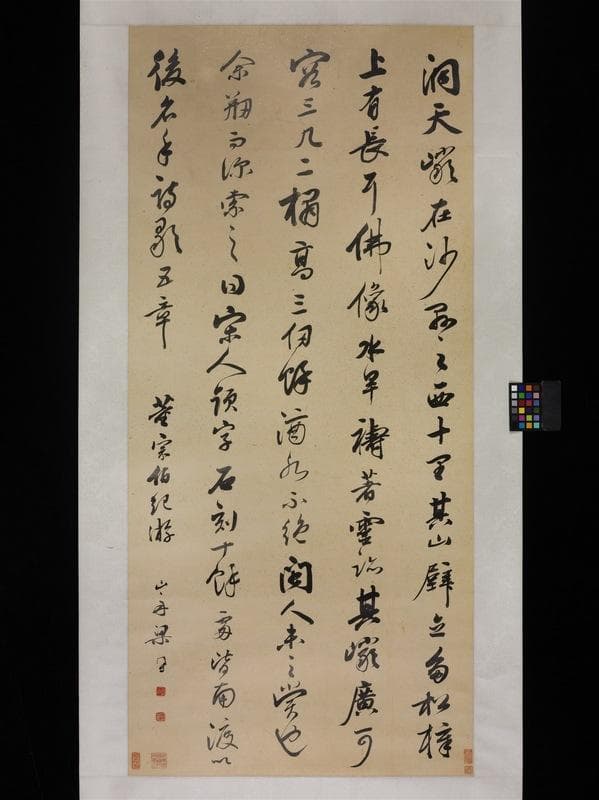 洞天巖在沙縣之西十里其山壁立多松樟
上有長耳佛像水旱禱著靈跡其巖廣可
容三几二榻高三仞餘滴水不絕閩人未之賞也
余而深索之曰宋人題字石刻十餘處皆南渡以
後名手詩歌五章 董宗伯紀游 山舟梁同書